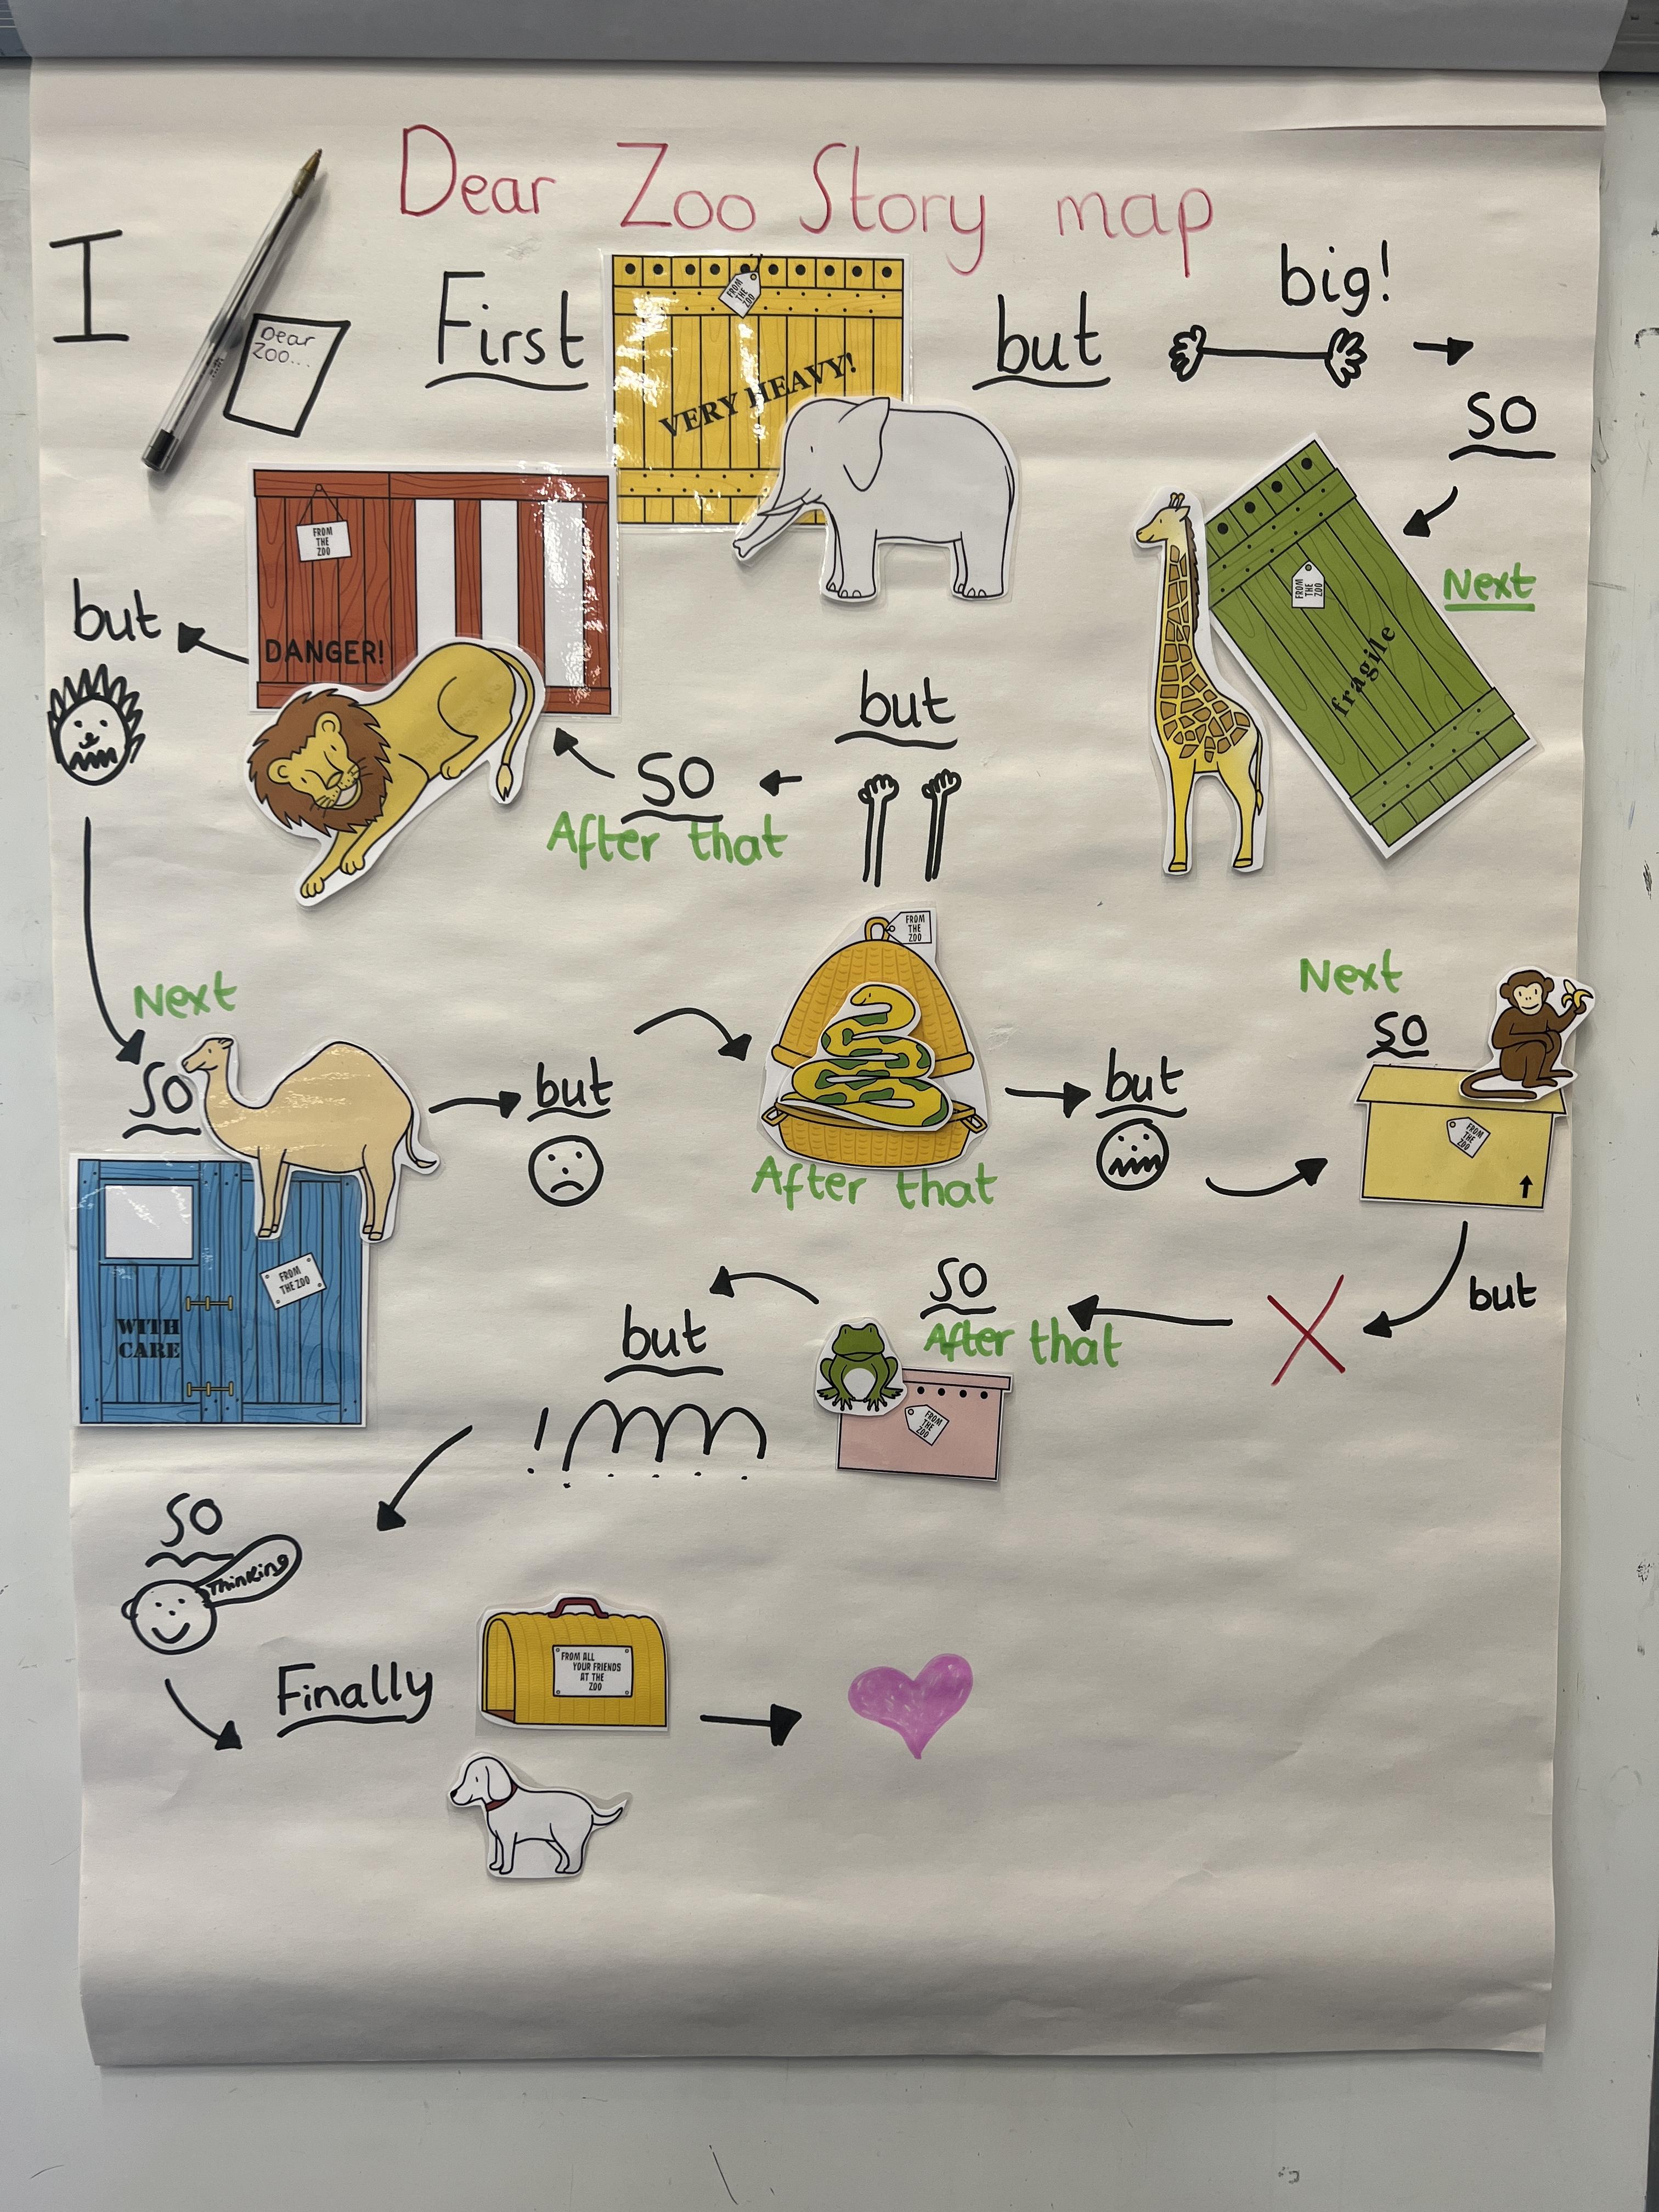 Dear Zoo Story map
I
Dear
Zoo...
First
FROM
THE
ZOO
VERY HEAVY!
but
big!
so
Next
FROM
THE
ZOO
fragile
but
so
After that
FROM
THE
ZOO
DANGER!
but
Next
so
FROM
THE ZOO
WITH
CARE
but
FROM
THE
ZOO
After that
but
Next
so
FROM
THE
ZOO
but
so
After that
FROM
THE
ZOO
but
!
so
Thinking
Finally
FROM ALL
YOUR FRIENDS
AT THE
ZOO